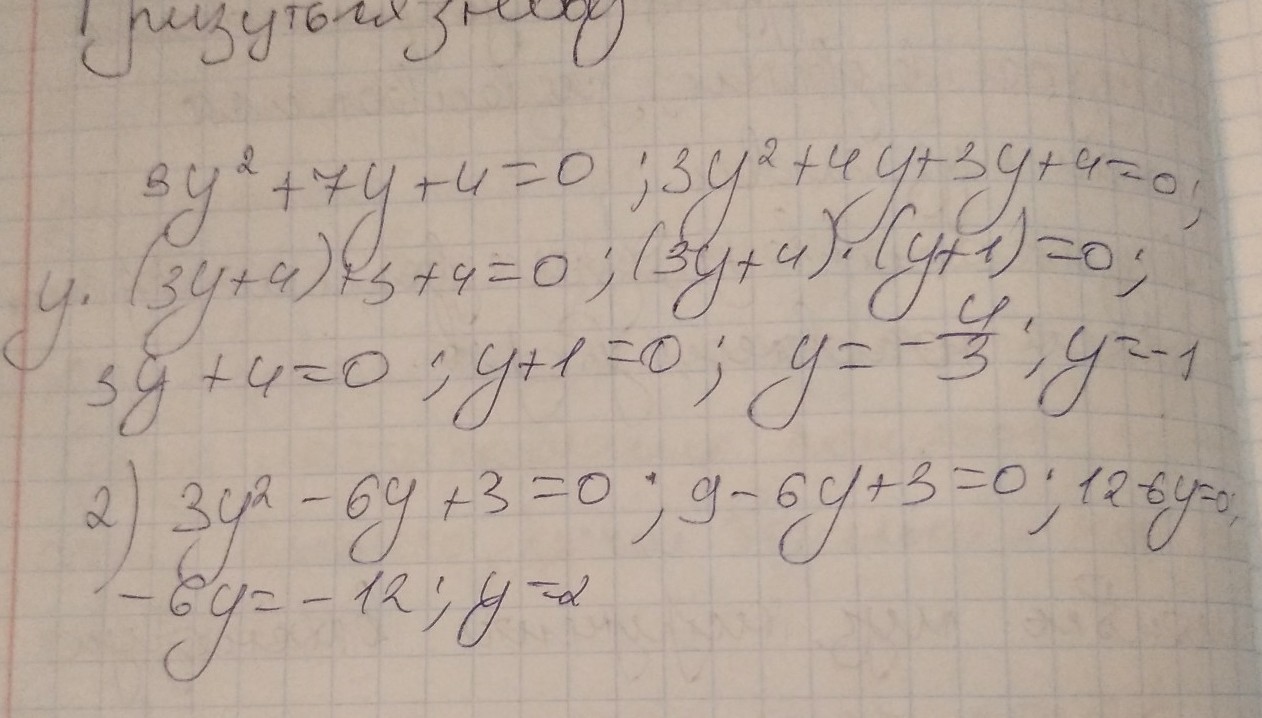 3y² + 7y + 4 = 0 ; 3y² + 4y + 3y + 4 = 0 ;
y · (3y + 4) + 3 + 4 = 0 ; (3y + 4) · (y + 1) = 0 ;
3y + 4 = 0 ; y + 1 = 0 ; y = - 4/3 ; y = -1
2) 3y² - 6y + 3 = 0 ; 9 - 6y + 3 = 0 ; 12 - 6y = 0 ;
- 6y = - 12 ; y = 2